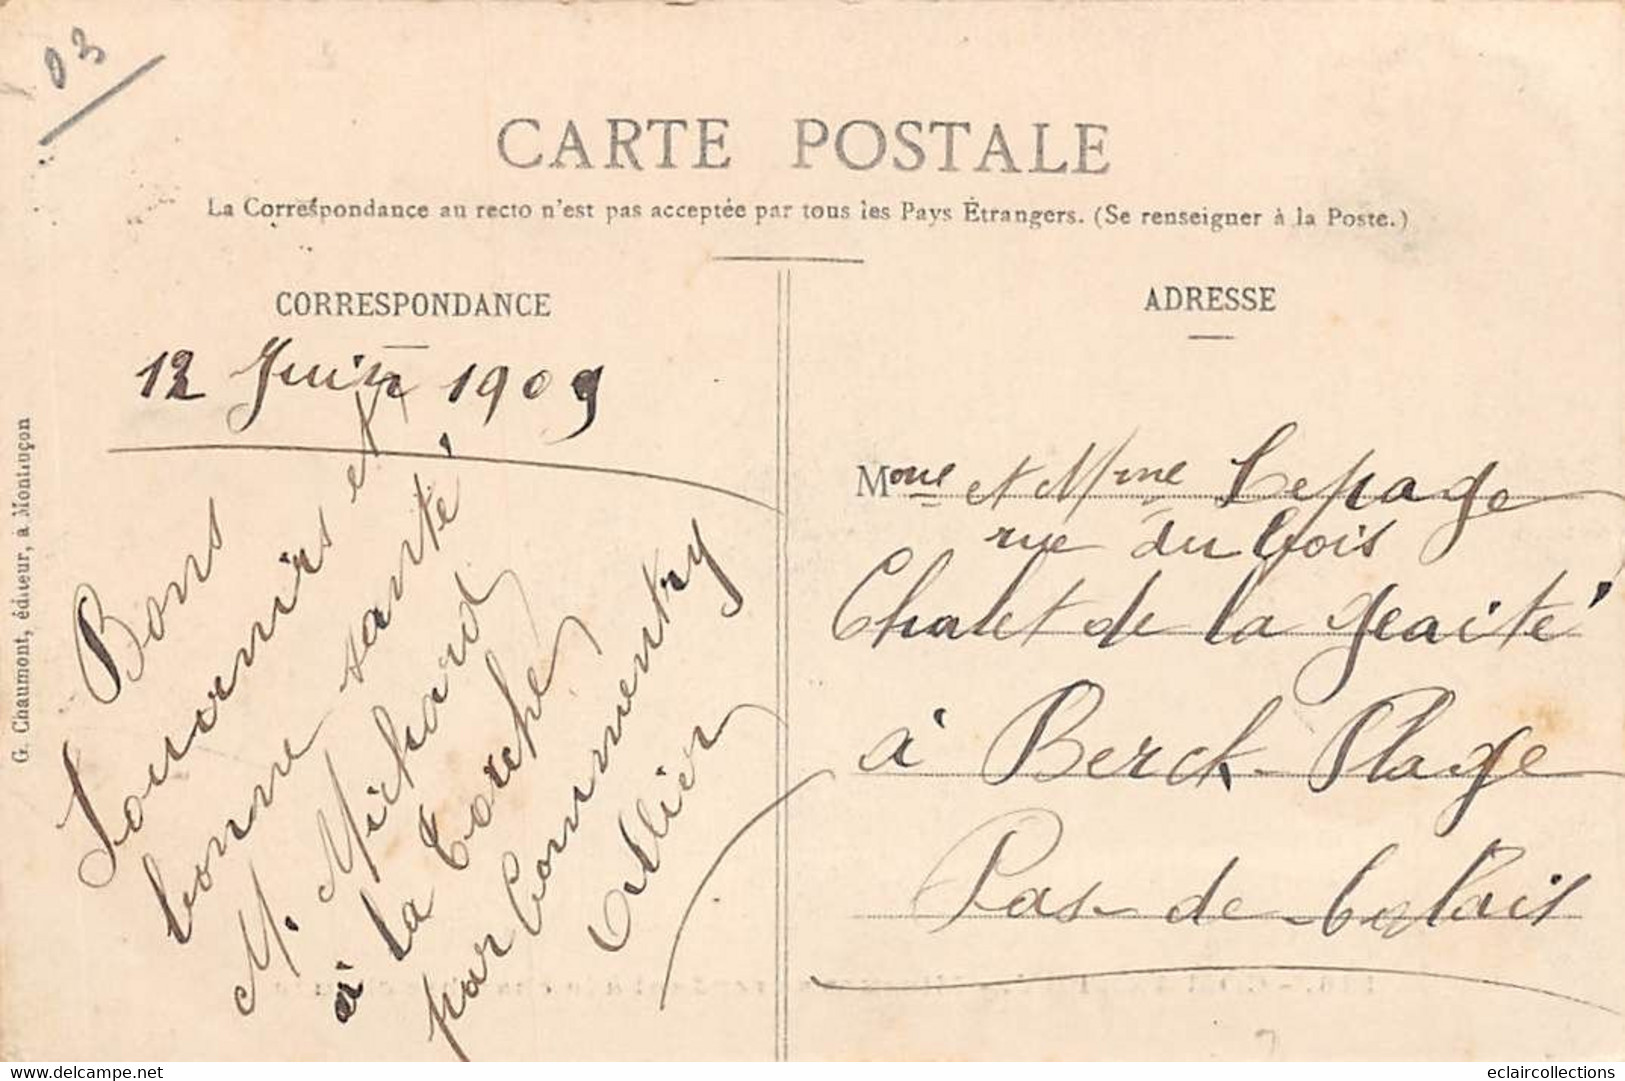 03
CARTE POSTALE
La Correspondance au recto n'est pas acceptée par tous les Pays Étrangers. (Se renseigner à la Poste.)
CORRESPONDANCE
12 Juin 1909
Bons
Souvenirs et
bonne santé
M. Michard
à la Torche
par Commentry
Allier
G. Chaumont, éditeur, à Montluçon
ADRESSE
M et Mme Lepage
rue du Bois
Chalet de la geaité
à Berck-Plage
Pas-de-Calais
www.delcampe.net
eclaircollections